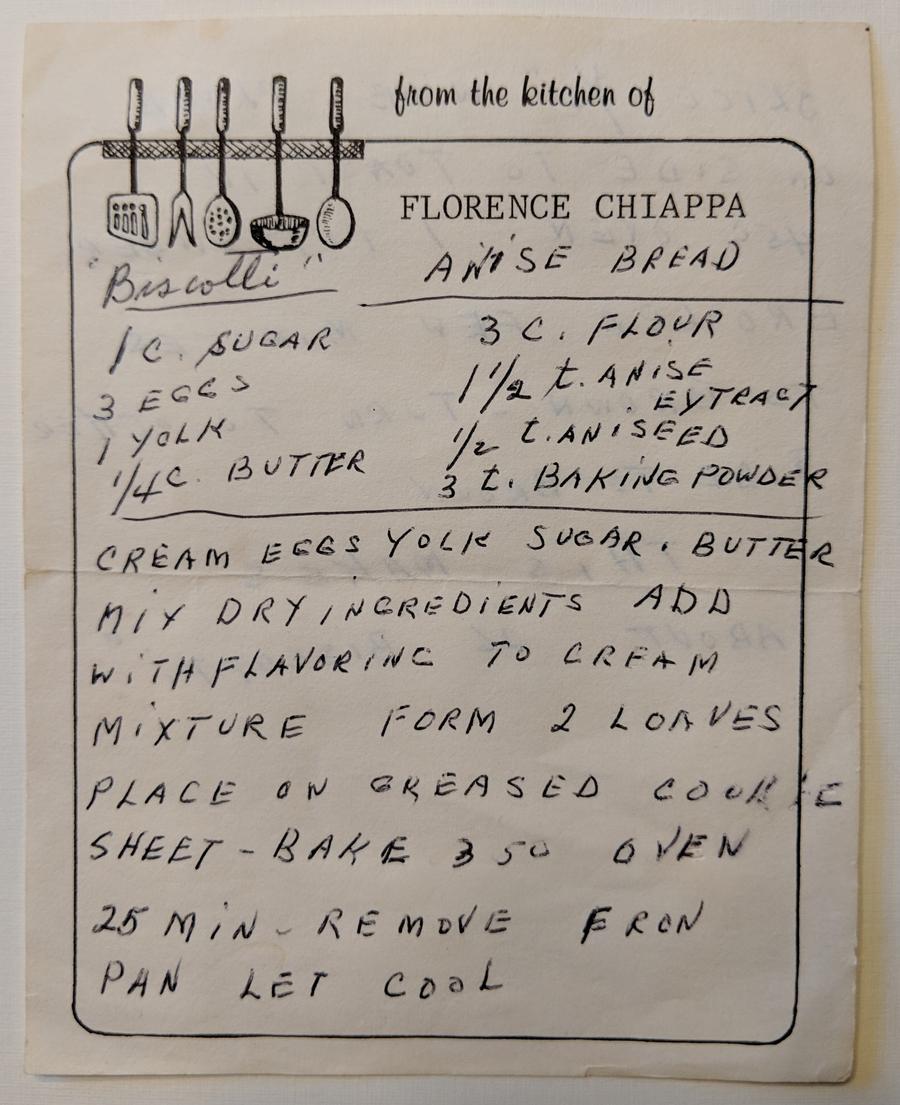 from the kitchen of
FLORENCE CHIAPPA
"Biscotti"
ANISE BREAD
1 C. SUGAR
3 EGGS
1 YOLK
1/4 C. BUTTER
3 C. FLOUR
1 1/2 t. ANISE
EYTRACT
1/2 t. ANISEED
3 t. BAKING POWDER
CREAM EGGS YOLK SUGAR. BUTTER
MIX DRY INGREDIENTS ADD
WITH FLAVORING TO CREAM
MIXTURE FORM 2 LOAVES
PLACE ON GREASED COOKIE
SHEET - BAKE 350 OVEN
25 MIN - REMOVE FRON
PAN LET COOL